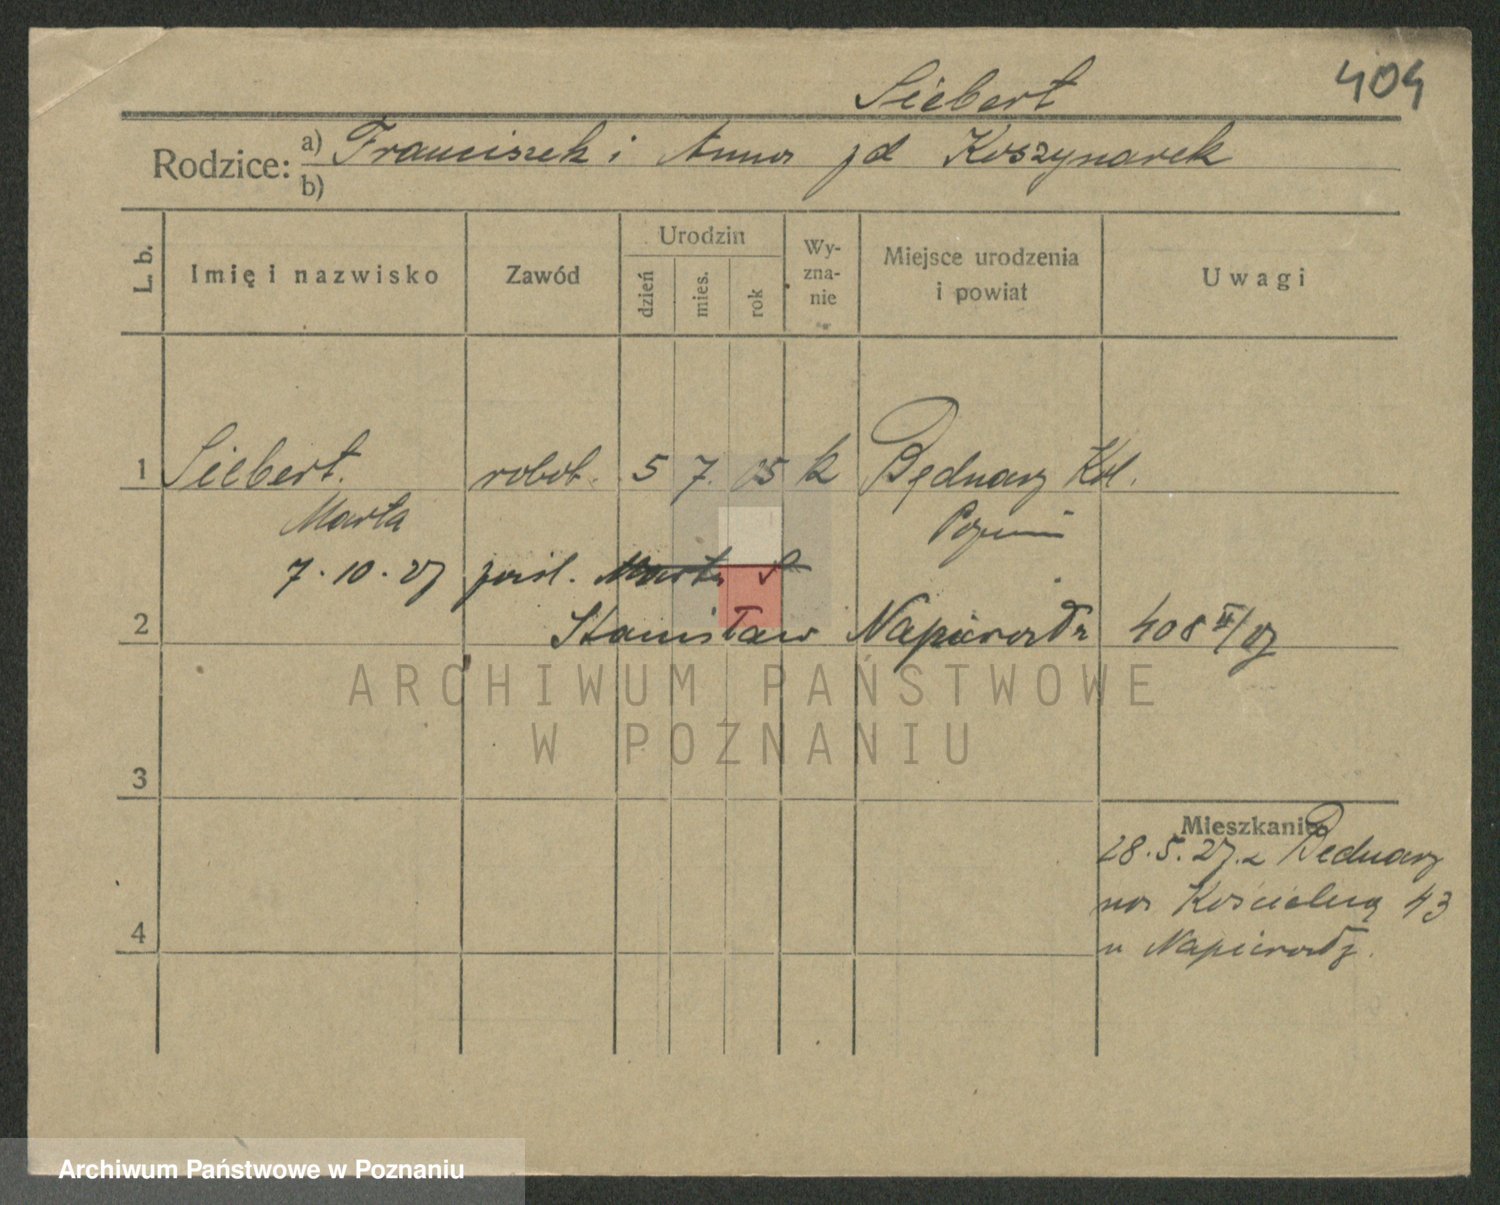 Siebert
404
Rodzice: a) Franciszek i Anna zd Koszynarek
b)
L. b. Imię i nazwisko Zawód Urodzin dzień mies. rok Wy-zna-nie Miejsce urodzenia i powiat Uwagi
1 Siebert. robot. 5 7. 05 k Bednary Kol.
Marta
7.10.27 pośl. Marta S
2 Stanisław Napierała 408 II/27
ARCHIWUM PAŃSTWOWE
W POZNANIU
3
Mieszkanie
28.5.27. z Bednary
na Kościelną 43
4 u Napierały.
Archiwum Państwowe w Poznaniu